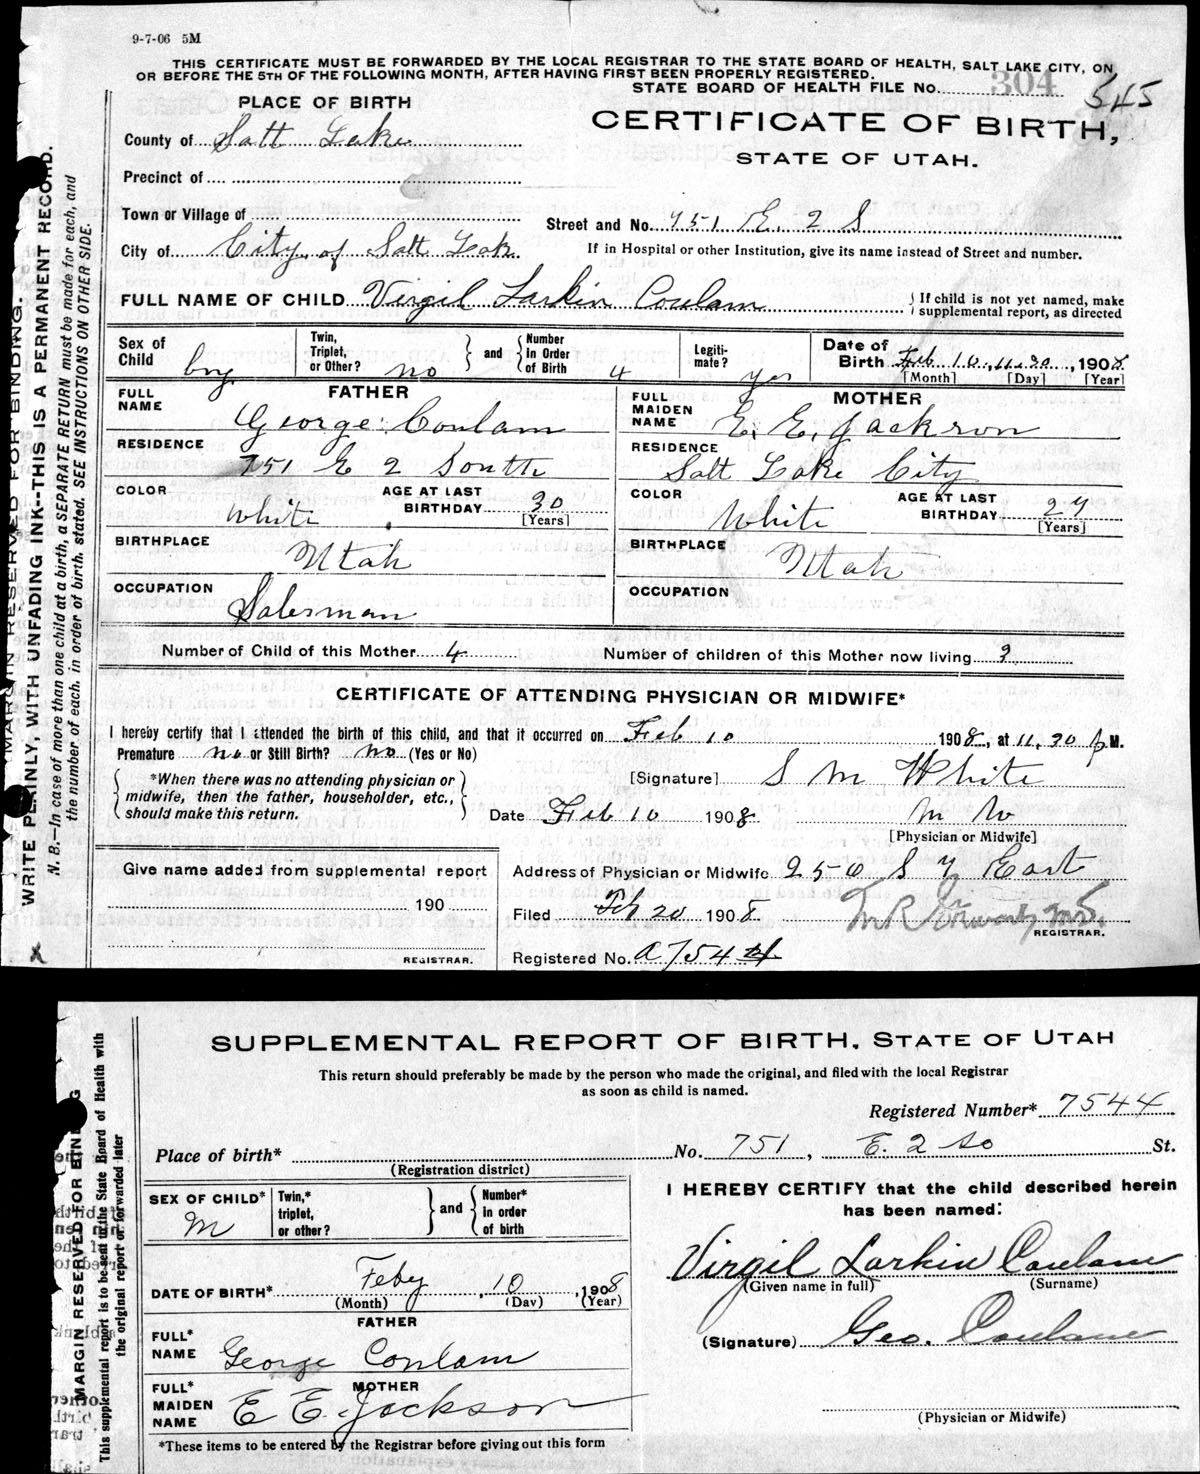 9-7-06 5M
THIS CERTIFICATE MUST BE FORWARDED BY THE LOCAL REGISTRAR TO THE STATE BOARD OF HEALTH, SALT LAKE CITY, ON
OR BEFORE THE 5TH OF THE FOLLOWING MONTH, AFTER HAVING FIRST BEEN PROPERLY REGISTERED.
STATE BOARD OF HEALTH FILE No. 304 545
PLACE OF BIRTH
CERTIFICATE OF BIRTH,
STATE OF UTAH.
County of Salt Lake
Precinct of
Town or Village of
Street and No. 751 E. 2 S
City of City of Salt Lake
If in Hospital or other Institution, give its name instead of Street and number.
FULL NAME OF CHILD Virgil Larkin Coulam
If child is not yet named, make
supplemental report, as directed
Sex of Child boy
Twin, Triplet, or Other? no
and
Number in Order of Birth 4
Legitimate? yes
Date of Birth Feb 10, 11.30, 1908
[Month] [Day] [Year]
FATHER
FULL NAME George Coulam
RESIDENCE 751 E 2 South
COLOR White
AGE AT LAST BIRTHDAY 30 [Years]
BIRTHPLACE Utah
OCCUPATION Salesman
MOTHER
FULL MAIDEN NAME E. E. Jackson
RESIDENCE Salt Lake City
COLOR White
AGE AT LAST BIRTHDAY 27 [Years]
BIRTHPLACE Utah
OCCUPATION
Number of Child of this Mother 4
Number of children of this Mother now living 3
CERTIFICATE OF ATTENDING PHYSICIAN OR MIDWIFE*
I hereby certify that I attended the birth of this child, and that it occurred on Feb 10 1908, at 11.30 p M.
Premature no or Still Birth? no (Yes or No)
*When there was no attending physician or
midwife, then the father, householder, etc.,
should make this return.
[Signature] S M White
Date Feb 10 1908
M W
[Physician or Midwife]
Give name added from supplemental report
190
REGISTRAR.
Address of Physician or Midwife 250 S 7 East
Filed Feb 20 1908
REGISTRAR.
Registered No. a 7544
MARGIN RESERVED FOR BINDING.
WRITE PLAINLY, WITH UNFADING INK--THIS IS A PERMANENT RECORD.
N. B.—In case of more than one child at a birth, a SEPARATE RETURN must be made for each, and
the number of each, in order of birth, stated. SEE INSTRUCTIONS ON OTHER SIDE.
X
SUPPLEMENTAL REPORT OF BIRTH, STATE OF UTAH
This return should preferably be made by the person who made the original, and filed with the local Registrar
as soon as child is named.
Registered Number* 7544
Place of birth* No. 751, E. 2 So St.
(Registration district)
SEX OF CHILD* M
Twin,* triplet, or other?
and
Number* in order of birth
DATE OF BIRTH* Feby, 10, 1908
(Month) (Day) (Year)
FATHER
FULL* NAME George Coulam
MOTHER
FULL* MAIDEN NAME E E Jackson
*These items to be entered by the Registrar before giving out this form
I HEREBY CERTIFY that the child described herein
has been named:
Virgil Larkin Coulam
(Given name in full) (Surname)
(Signature) Geo. Coulam
(Physician or Midwife)
MARGIN RESERVED FOR BINDING
This supplemental report is to be sent to the State Board of Health with
the original report or forwarded later